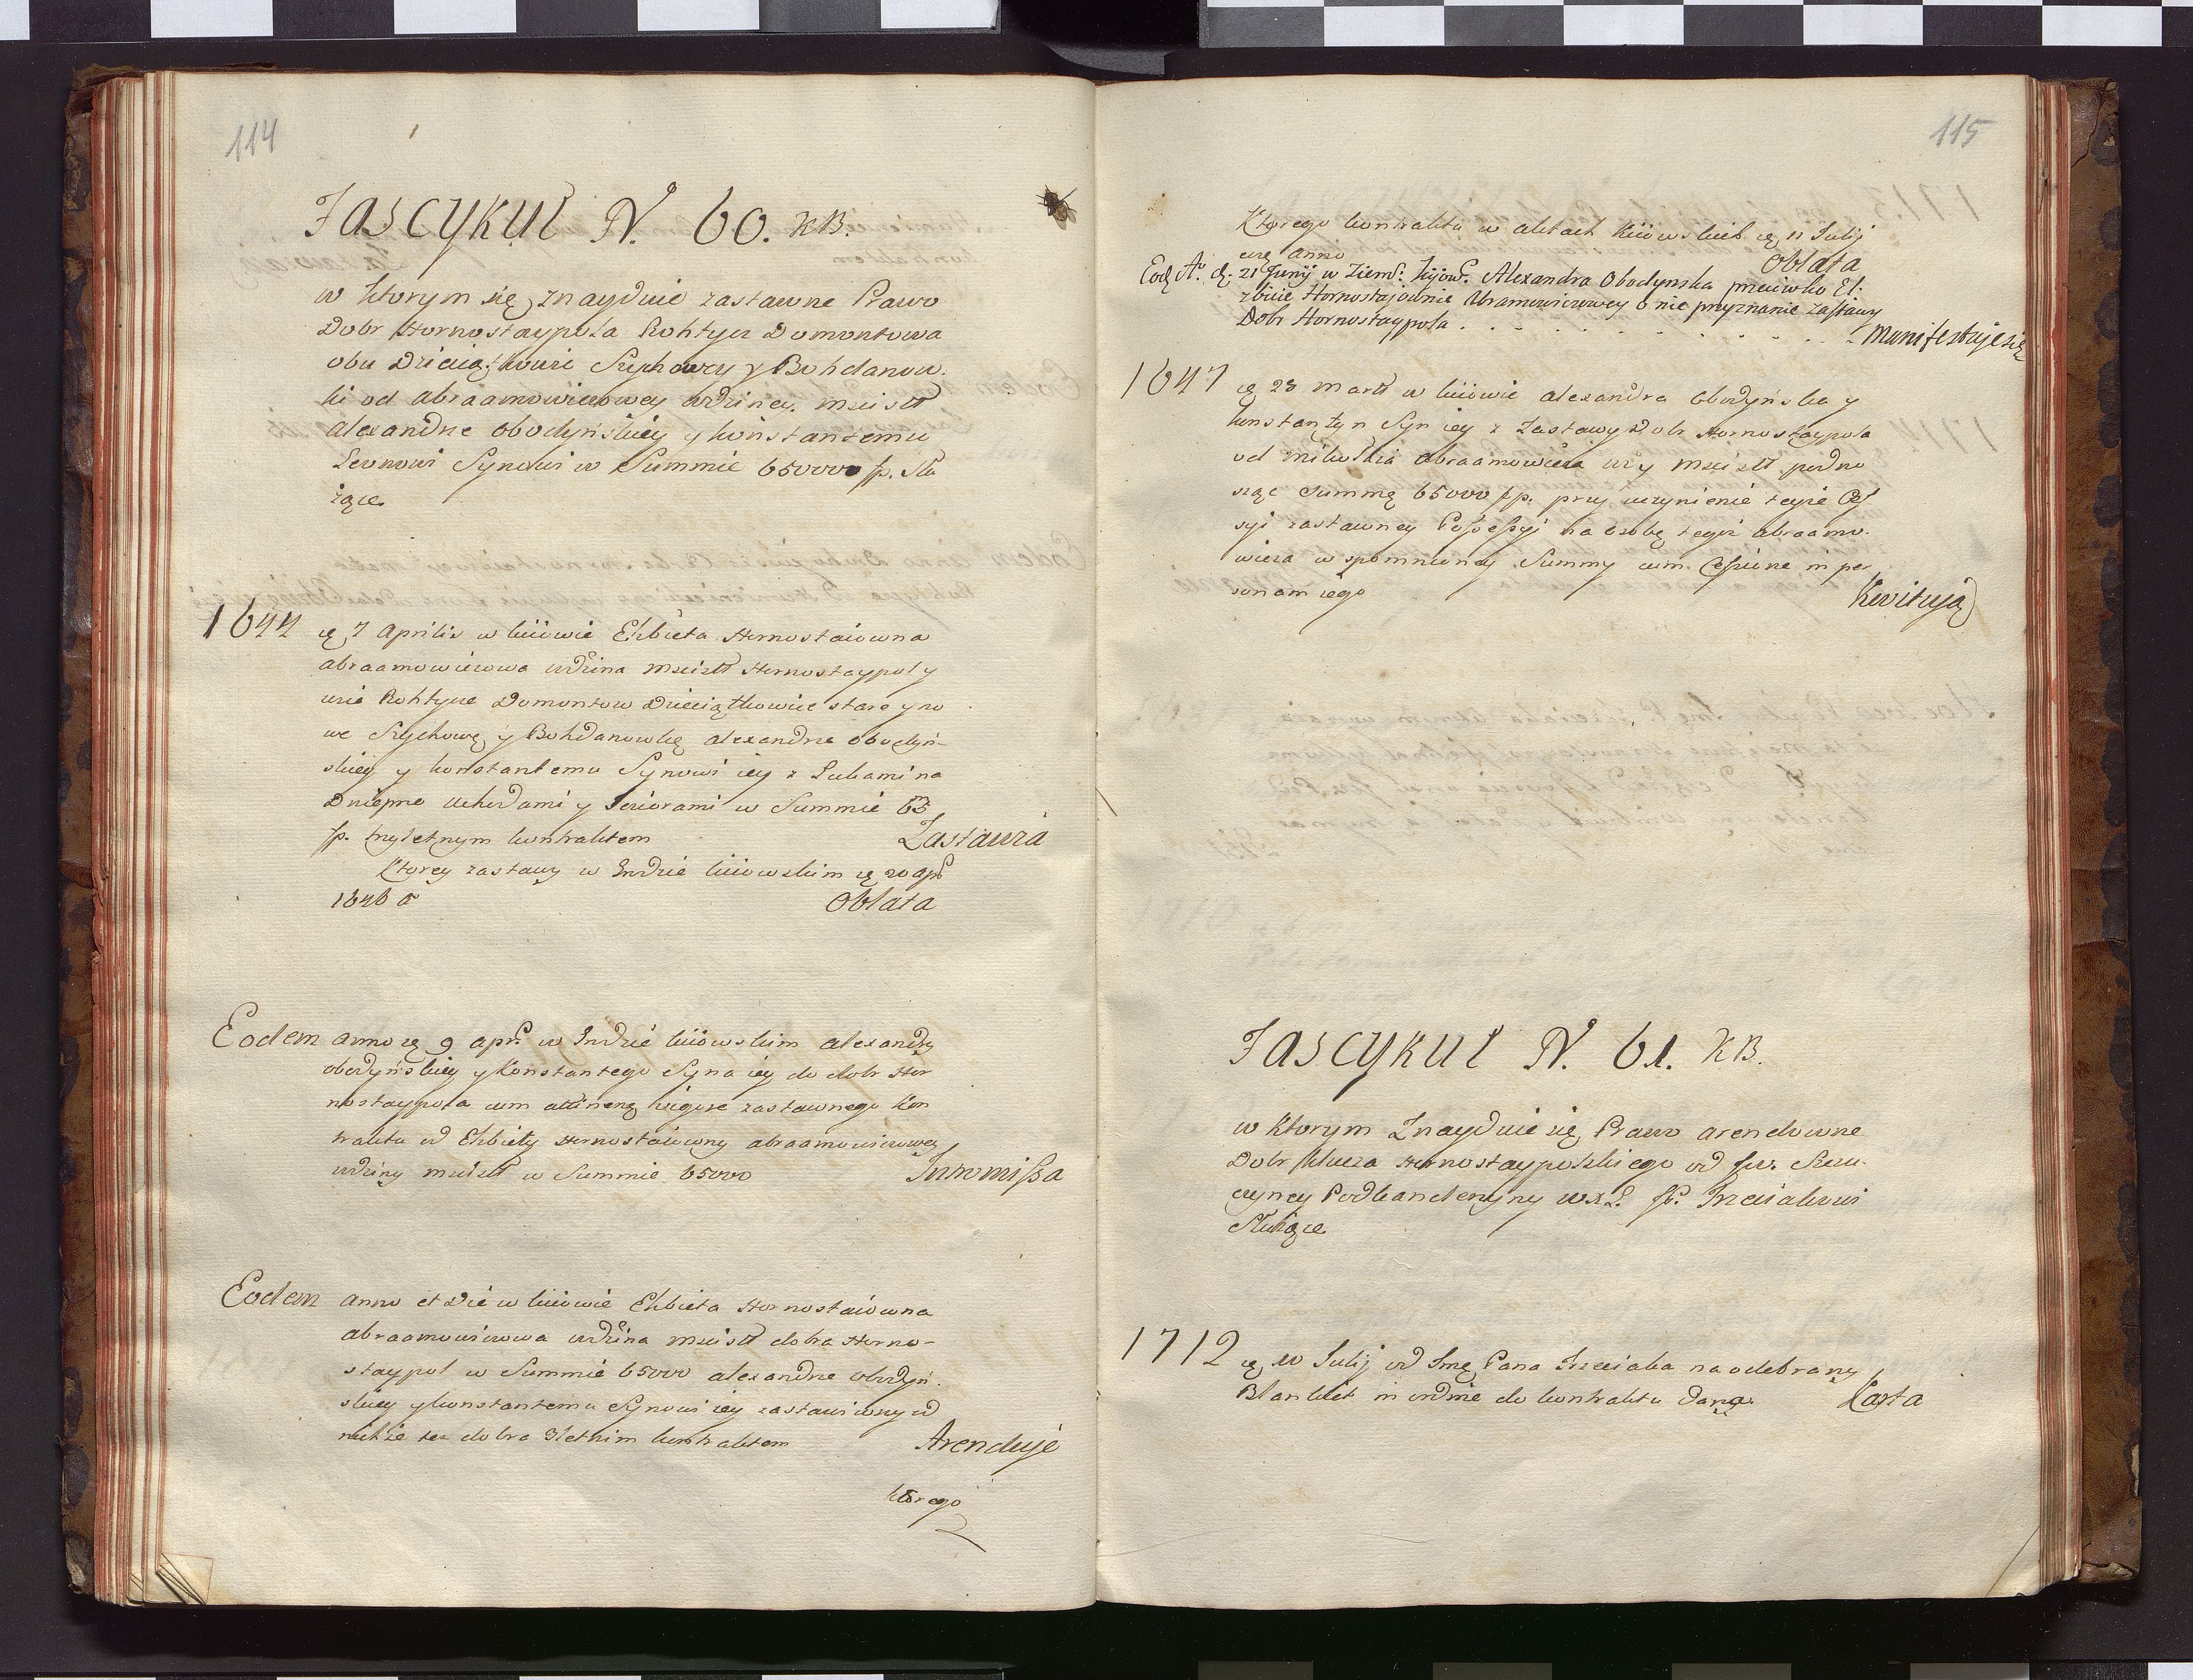 114
Fascykuł N. 60. KB.
w ktorym się znayduie zastawne Prawo
Dobr Hornostaypola Rohtycz Domontowa
obu Dzieciątkowic Sychowey y Bohdanow-
ki od Abraamowiczowey wdziney Mscisł
Alexandrze Obodyńskiey y Konstantemu
Leonowi Synowi w Summie 65000 fp. Słu
żące
1644 ię 7 Aprilis w Kiiowie Elzbieta Hornostaiowna
Abraamowiczowa wdzina Mscisł Hornostaypol y
wsie Rohtycze Domontow Dzieciątkowice stare y no
we Sychowę y Bohdanowkę Alexandrze Obodyń-
skiey y Konstantemu Synowi iey z Lukami na
Dnieprze uchodami y Jeziorami w Summie 65
fp. trzyletnym kontraktem Zastawia
Ktorey zastawy w Grodzie Kiiowskim ię 20 apr
1646 o Oblata
Eodem anno ię 9 apr. w Grodzie Kiiowskim Alexandry
Obodyńskiey y Konstantego Syna iey do dobr Hor
nostaypola cum attinen. vigore zastawnego Kon
traktu od Elzbiety Hornostaiowny Abraamowiczowey
wdziny Mscisł w Summie 65000 Intromissa
Eodem anno et Die w Kiiowie Elzbieta Hornostaiowna
Abraamowiczowa wdzina Mscisł dobra Horno-
staypol w Summie 65000 Alexandrze Obodyń.
skiey y Konstantemu Synowi iey zastawiony od
nichże też dobra 3letnim kontraktem Arenduje
ktorego
115
Ktorego kontraktu w aktach Kiiowskich ię 11 Julij
eoq anno Oblata
Eodę Ao. d. 21 Junij w Ziemś: kijow. Alexandra Obodynska przeciwko El:
zbicie Hornostajownie Abramowiczowey o nie przyznanie Zastawy
Dobr Hornostaypola . . . . . . . . . . Manifestuje się
1647 ię 28 Marti w Kiiowie Alexandra Obodyńska y
Konstantyn Syn iey z Zastawy Dobr Hornostaypola
od Mikołaia Abraamowicza wdy Mscisł podno
sząc Summę 65000 fp. przy uczynienie teyże Ces
syi zastawney Possessyi na osobę tegoż Abraamo-
wicza wspomnioney Summy cum Cessione in per
sonam iego Kwituią
Fascykuł N. 61. KB.
w Ktorym Znayduie się Prawo arendowne
Dobr klucza Hornostaypolskiego od Jw. Szczu-
czyney Podkanclerzyny WXL. JP. Trzeciakowi
Służące
1712 ię 10 Julij od Jmę Pana Trzeciaka na odebrany
Blankiet in ordine do kontraktu dana Karta